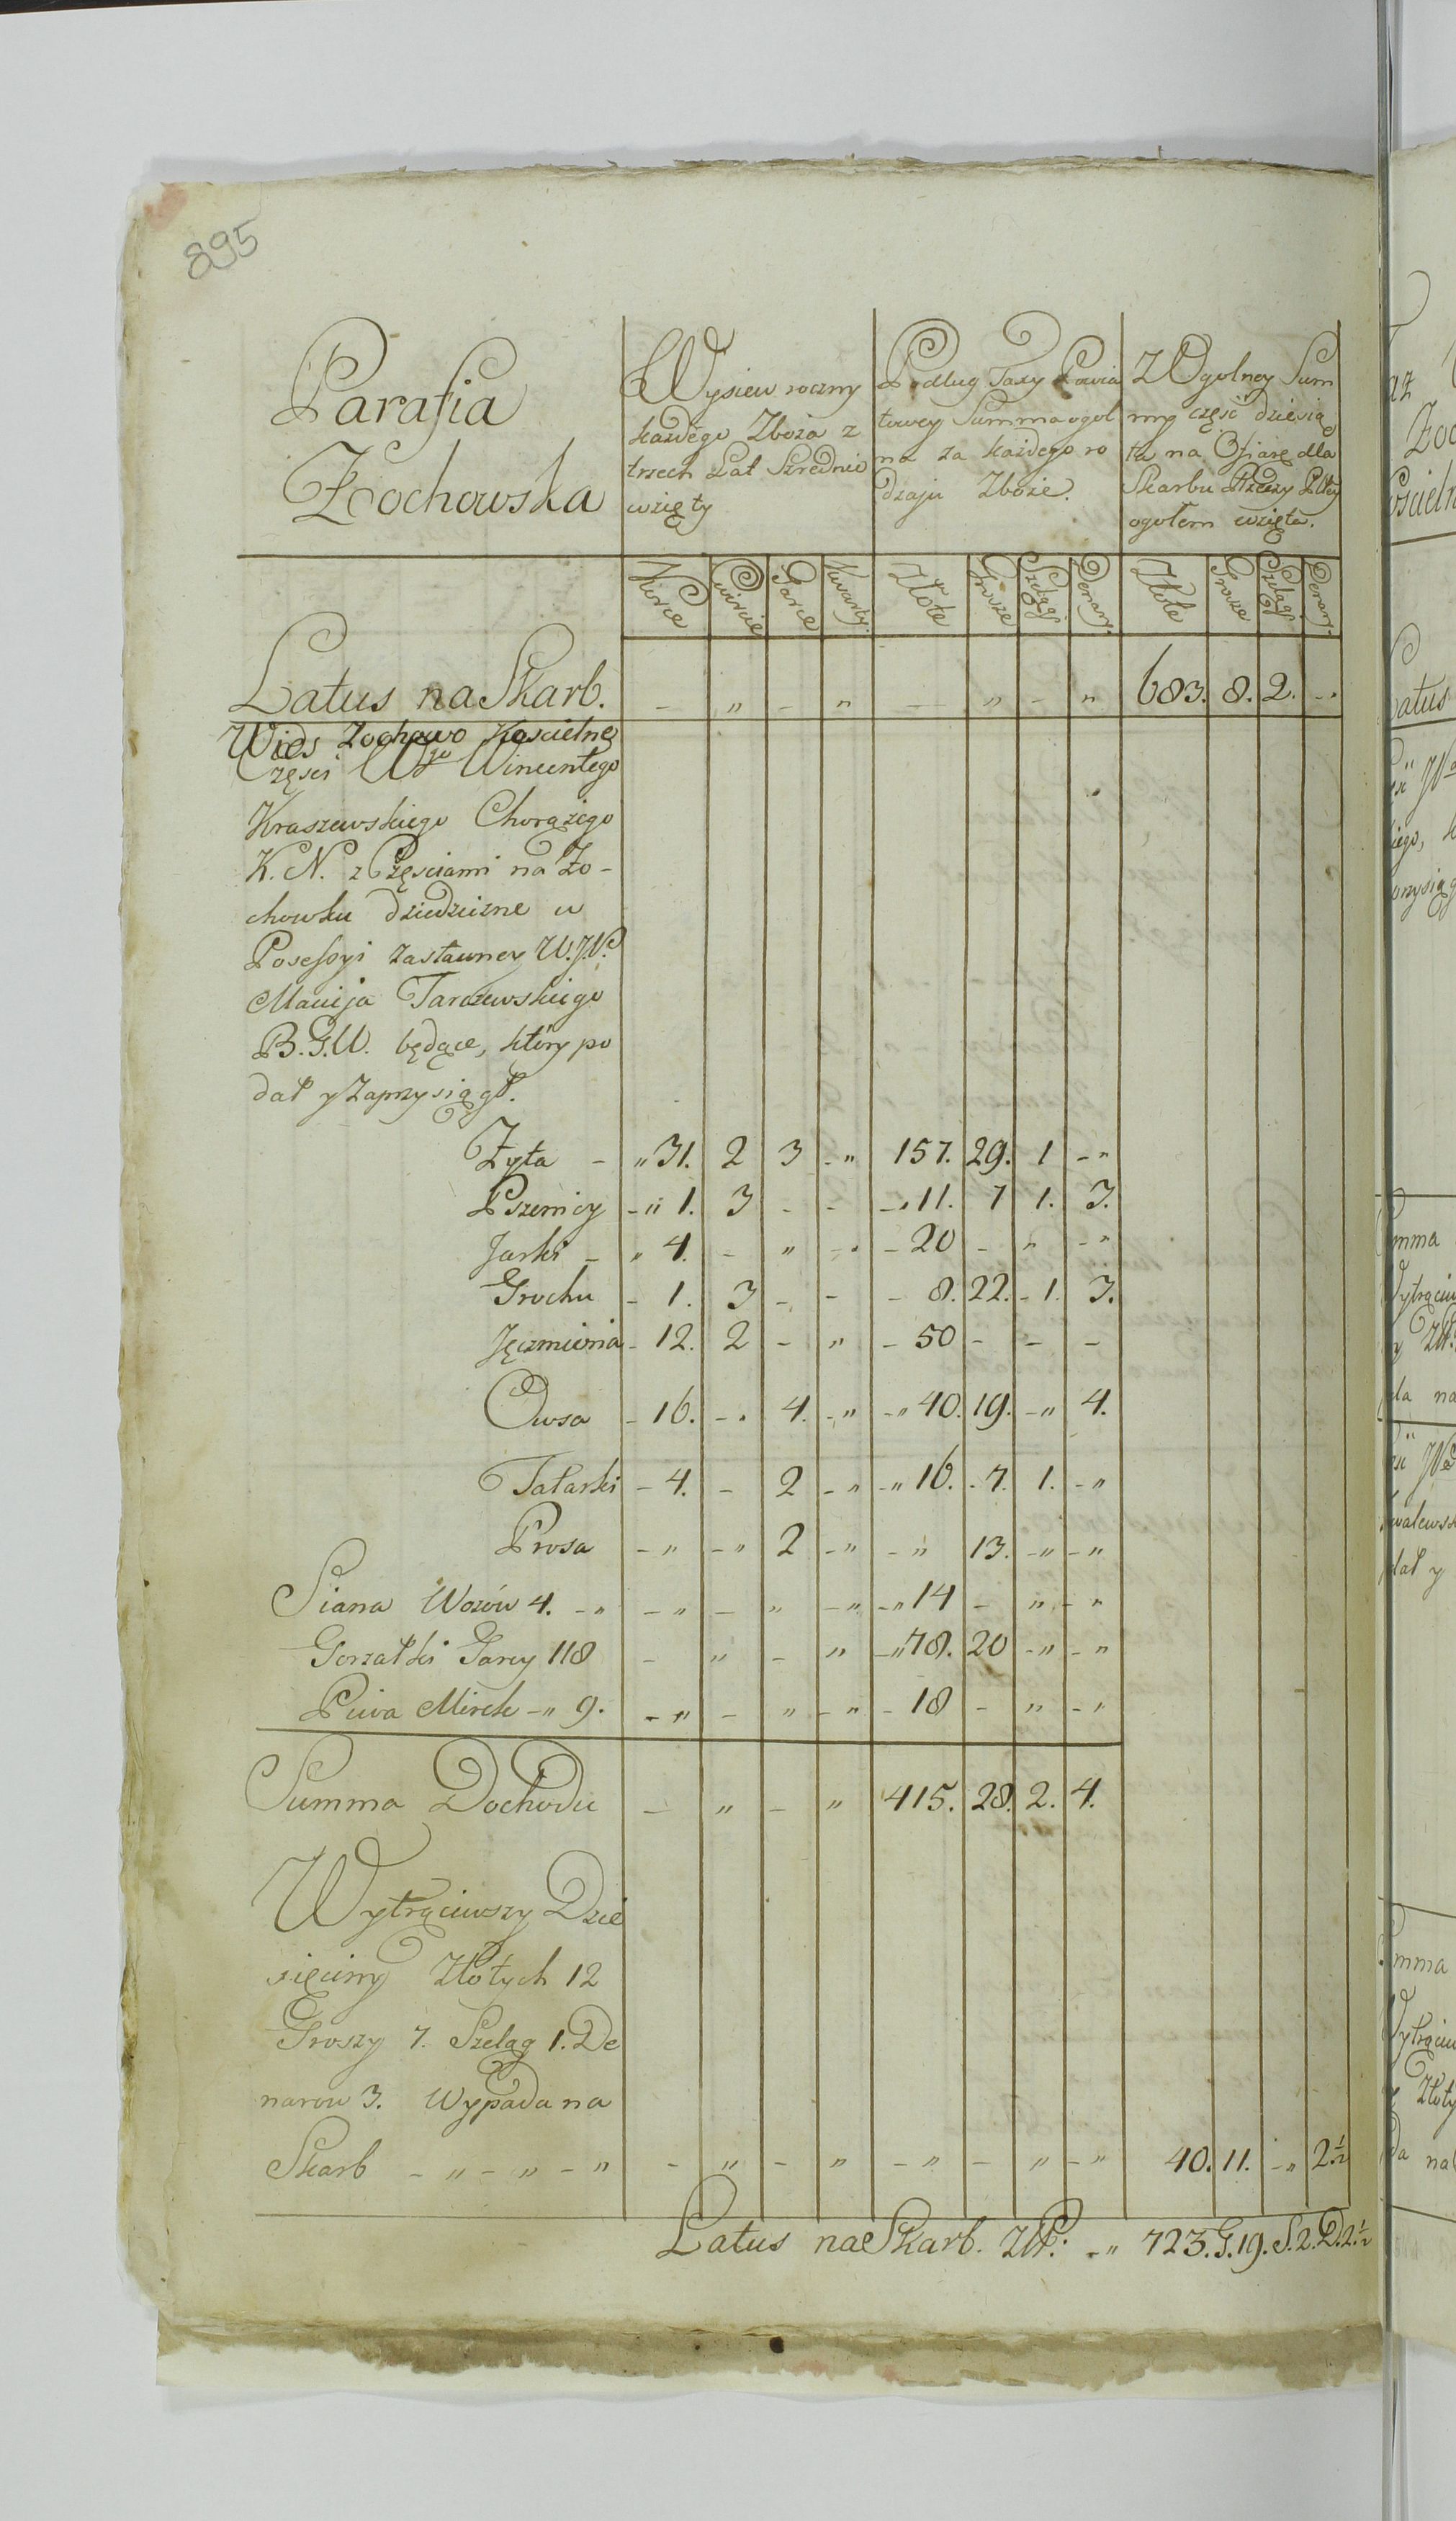 895
Parafia
Żochowska
Wysiew roczny
każdego Zboża z
trzech Lat Szrednio
wzięty
Podług Taxy Powia
towey Summa ogol
na za każdego ro
dzaju Zboże.
Z Ogolney Sum
my część dziesią
ta na Ofiarę dla
Skarbu Rzeczy Plitey
ogołem wzięta.
Korce Cwircie Garce Kwarty Złote Grosze Szelągi Denary Złote Grosze Szelągi Denary
Latus na Skarb. - „ - „ - „ - „ 683. 8. 2. -
Wieś Żochowo Kościelne
Częsci Wgo Wincentego
Kraszewskiego Chorążego
K. N. z Częsciami na Żo-
chowku dziedziczne w
Posessyi zastawney W. JP.
Macieja Tarczewskiego
B. G. W. będące, który po
dał y zaprzysiągł.
Żyta - „ 31. 2 3 - „ 157. 29. 1 - „
Pszenicy - „ 1. 3 - - - „ 11. 7 1. 3.
Jarki - „ 4. - „ - „ - 20 - „ - „
Grochu - 1. 3 - - - 8. 22. - 1. 3.
Jęczmienia - 12. 2 - „ - 50 - - -
Owsa - 16. - „ 4. - „ - „ 40. 19. - „ 4.
Tatarki - 4. - 2 - „ - „ 16. - 7. 1. - „
Prosa - „ - „ 2 - „ - „ 13. - „ - „
Siana Wozów 4. - „ - „ - „ - „ - „ 14 - „ - „
Gorzałki Garcy 118 - „ - „ - „ 78. 20 - „ - „
Piwa Mirek - „ 9. - „ - „ - „ - 18 - „ - „
Summa Dochodu - „ - „ 415. 28. 2. 4.
Wytrąciwszy Dzie
sięciny Złotych 12
Groszy 7. Szeląg 1. De
narow 3. Wypada na
Skarb - „ - „ - „ - „ - „ - „ - „ - „ 40. 11. - „ 2.½
Latus na Skarb. ZłP: - „ 723. G. 19. S. 2. D. 2.½